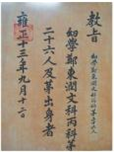 教旨
幼學鄭東潤文科丙科第
二十六人及第出身者
雍正十三年九月十二日